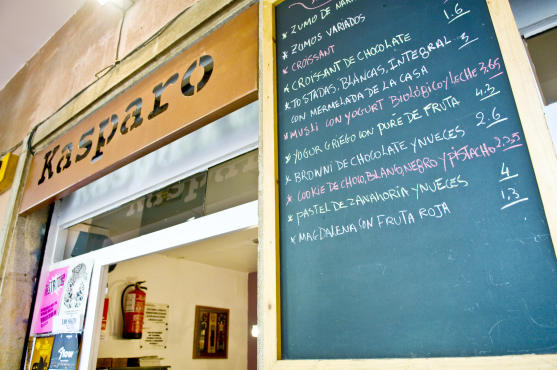 Kasparo
* ZUMO DE NARAN
* ZUMOS VARIADOS 1.6
* CROISSANT
* CROISSANT DE CHOCOLATE 3
* TOSTADAS, BLANCAS, INTEGRAL
CON MERMELADA DE LA CASA
* MUSLI CON YOGURT BIOLÓGICO Y LECHE 3,65
* YOGUR GRIEGO CON PURÉ DE FRUTA 4.3
* BROWNI DE CHOCOLATE Y NUECES 2.6
* COOKIE DE CHOCO, BLANCO, NEGRO Y PISTACHO 2.35
* PASTEL DE ZANAHORIA Y NUECES 4
* MAGDALENA CON FRUTA ROJA 1.3